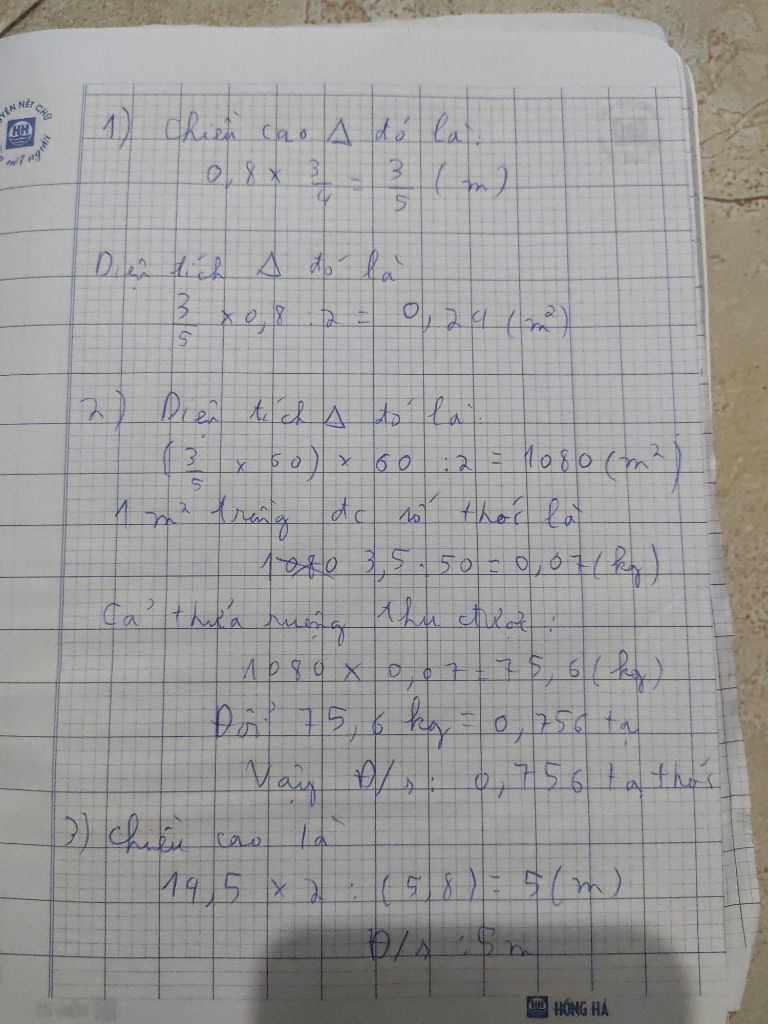 LUYỆN NÉT CHỮ
HH
RÈN NẾT NGƯỜI
1) Chiều cao Δ đó là:
0,8 × 3/4 = 3/5 (m)
Diện tích Δ đó là
3/5 × 0,8 : 2 = 0,24 (m²)
2) Diện tích Δ đó là:
(3/5 × 60) × 60 : 2 = 1080 (m²)
1 m² trồng đc số thóc là
1080 3,5 : 50 = 0,07 (kg)
Cả thửa ruộng thu được:
1080 × 0,07 = 75,6 (kg)
Đổi 75,6 kg = 0,756 tạ
Vậy Đ/s: 0,756 tạ thóc
3) Chiều cao là
14,5 × 2 : (5,8) = 5 (m)
Đ/s : 5m
HH HỒNG HÀ